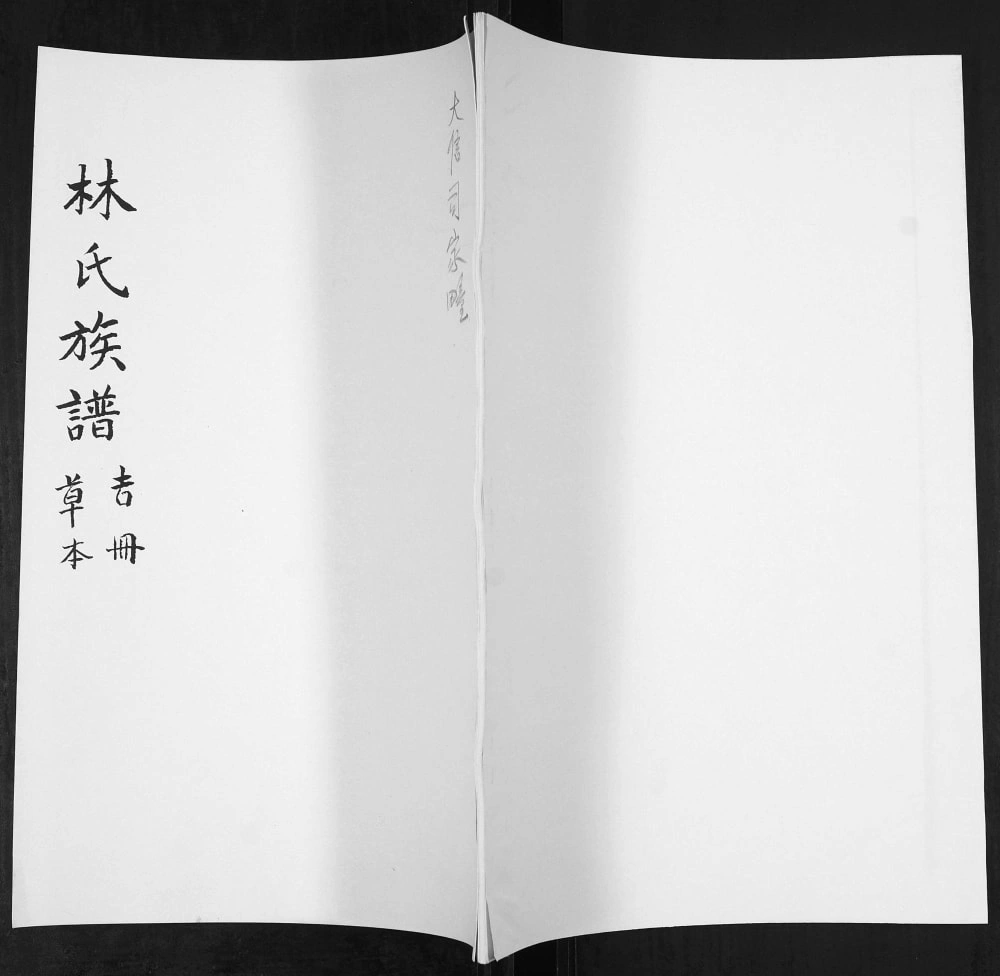 大信司家疃
林氏族譜
吉冊
草本